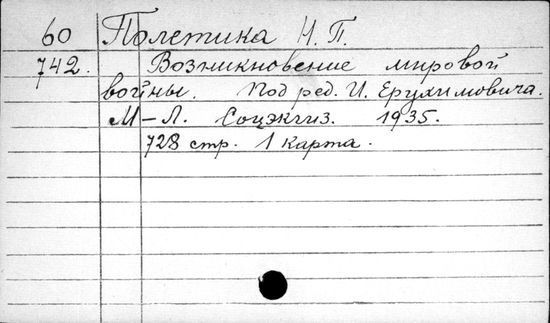 60 Полетика Н.П.
742. Возникновение мировой
войны. Под ред. И. Ерухимовича.
М-Л. Соцэкгиз. 1935.
728 стр. 1 карта.